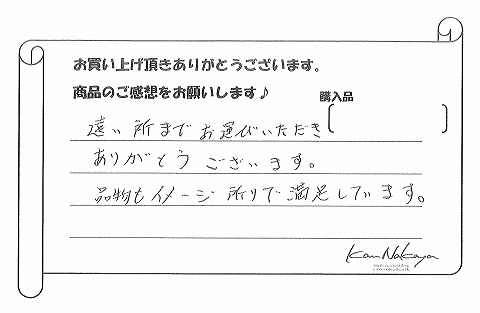 お買い上げ頂きありがとうございます。
商品のご感想をお願いします♪
購入品
遠い所までお運びいただき
ありがとうございます。
品物もイメージ所りで満足しています。
Kan Nakaya